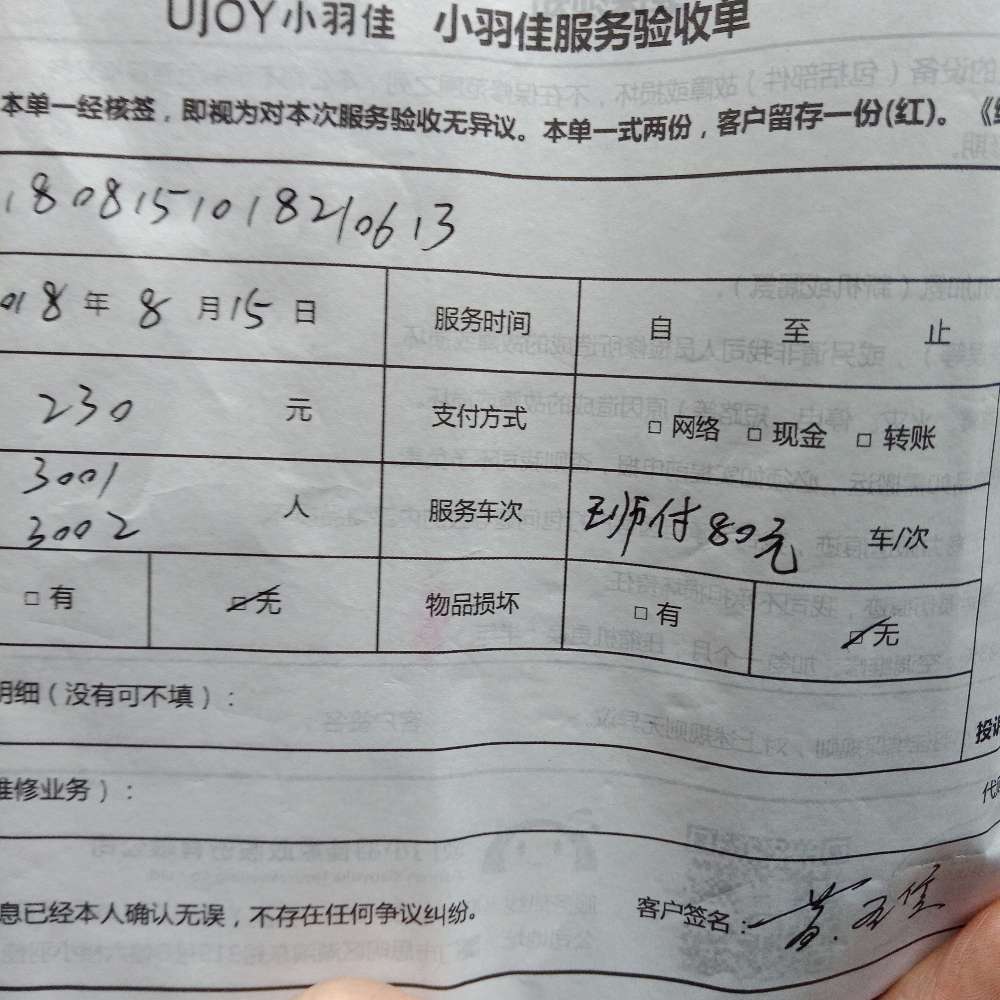 UJOY小羽佳 小羽佳服务验收单
本单一经核签，即视为对本次服务验收无异议。本单一式两份，客户留存一份(红)。
1808151018210613
018年8月15日 服务时间 自 至 止
230 元 支付方式 □ 网络 □ 现金 □ 转账
3001
3002 人 服务车次 付80元 车/次
□ 有 □ 无 物品损坏 □ 有 □ 无
明细（没有可不填）：
投诉
维修业务）：
息已经本人确认无误，不存在任何争议纠纷。 客户签名：